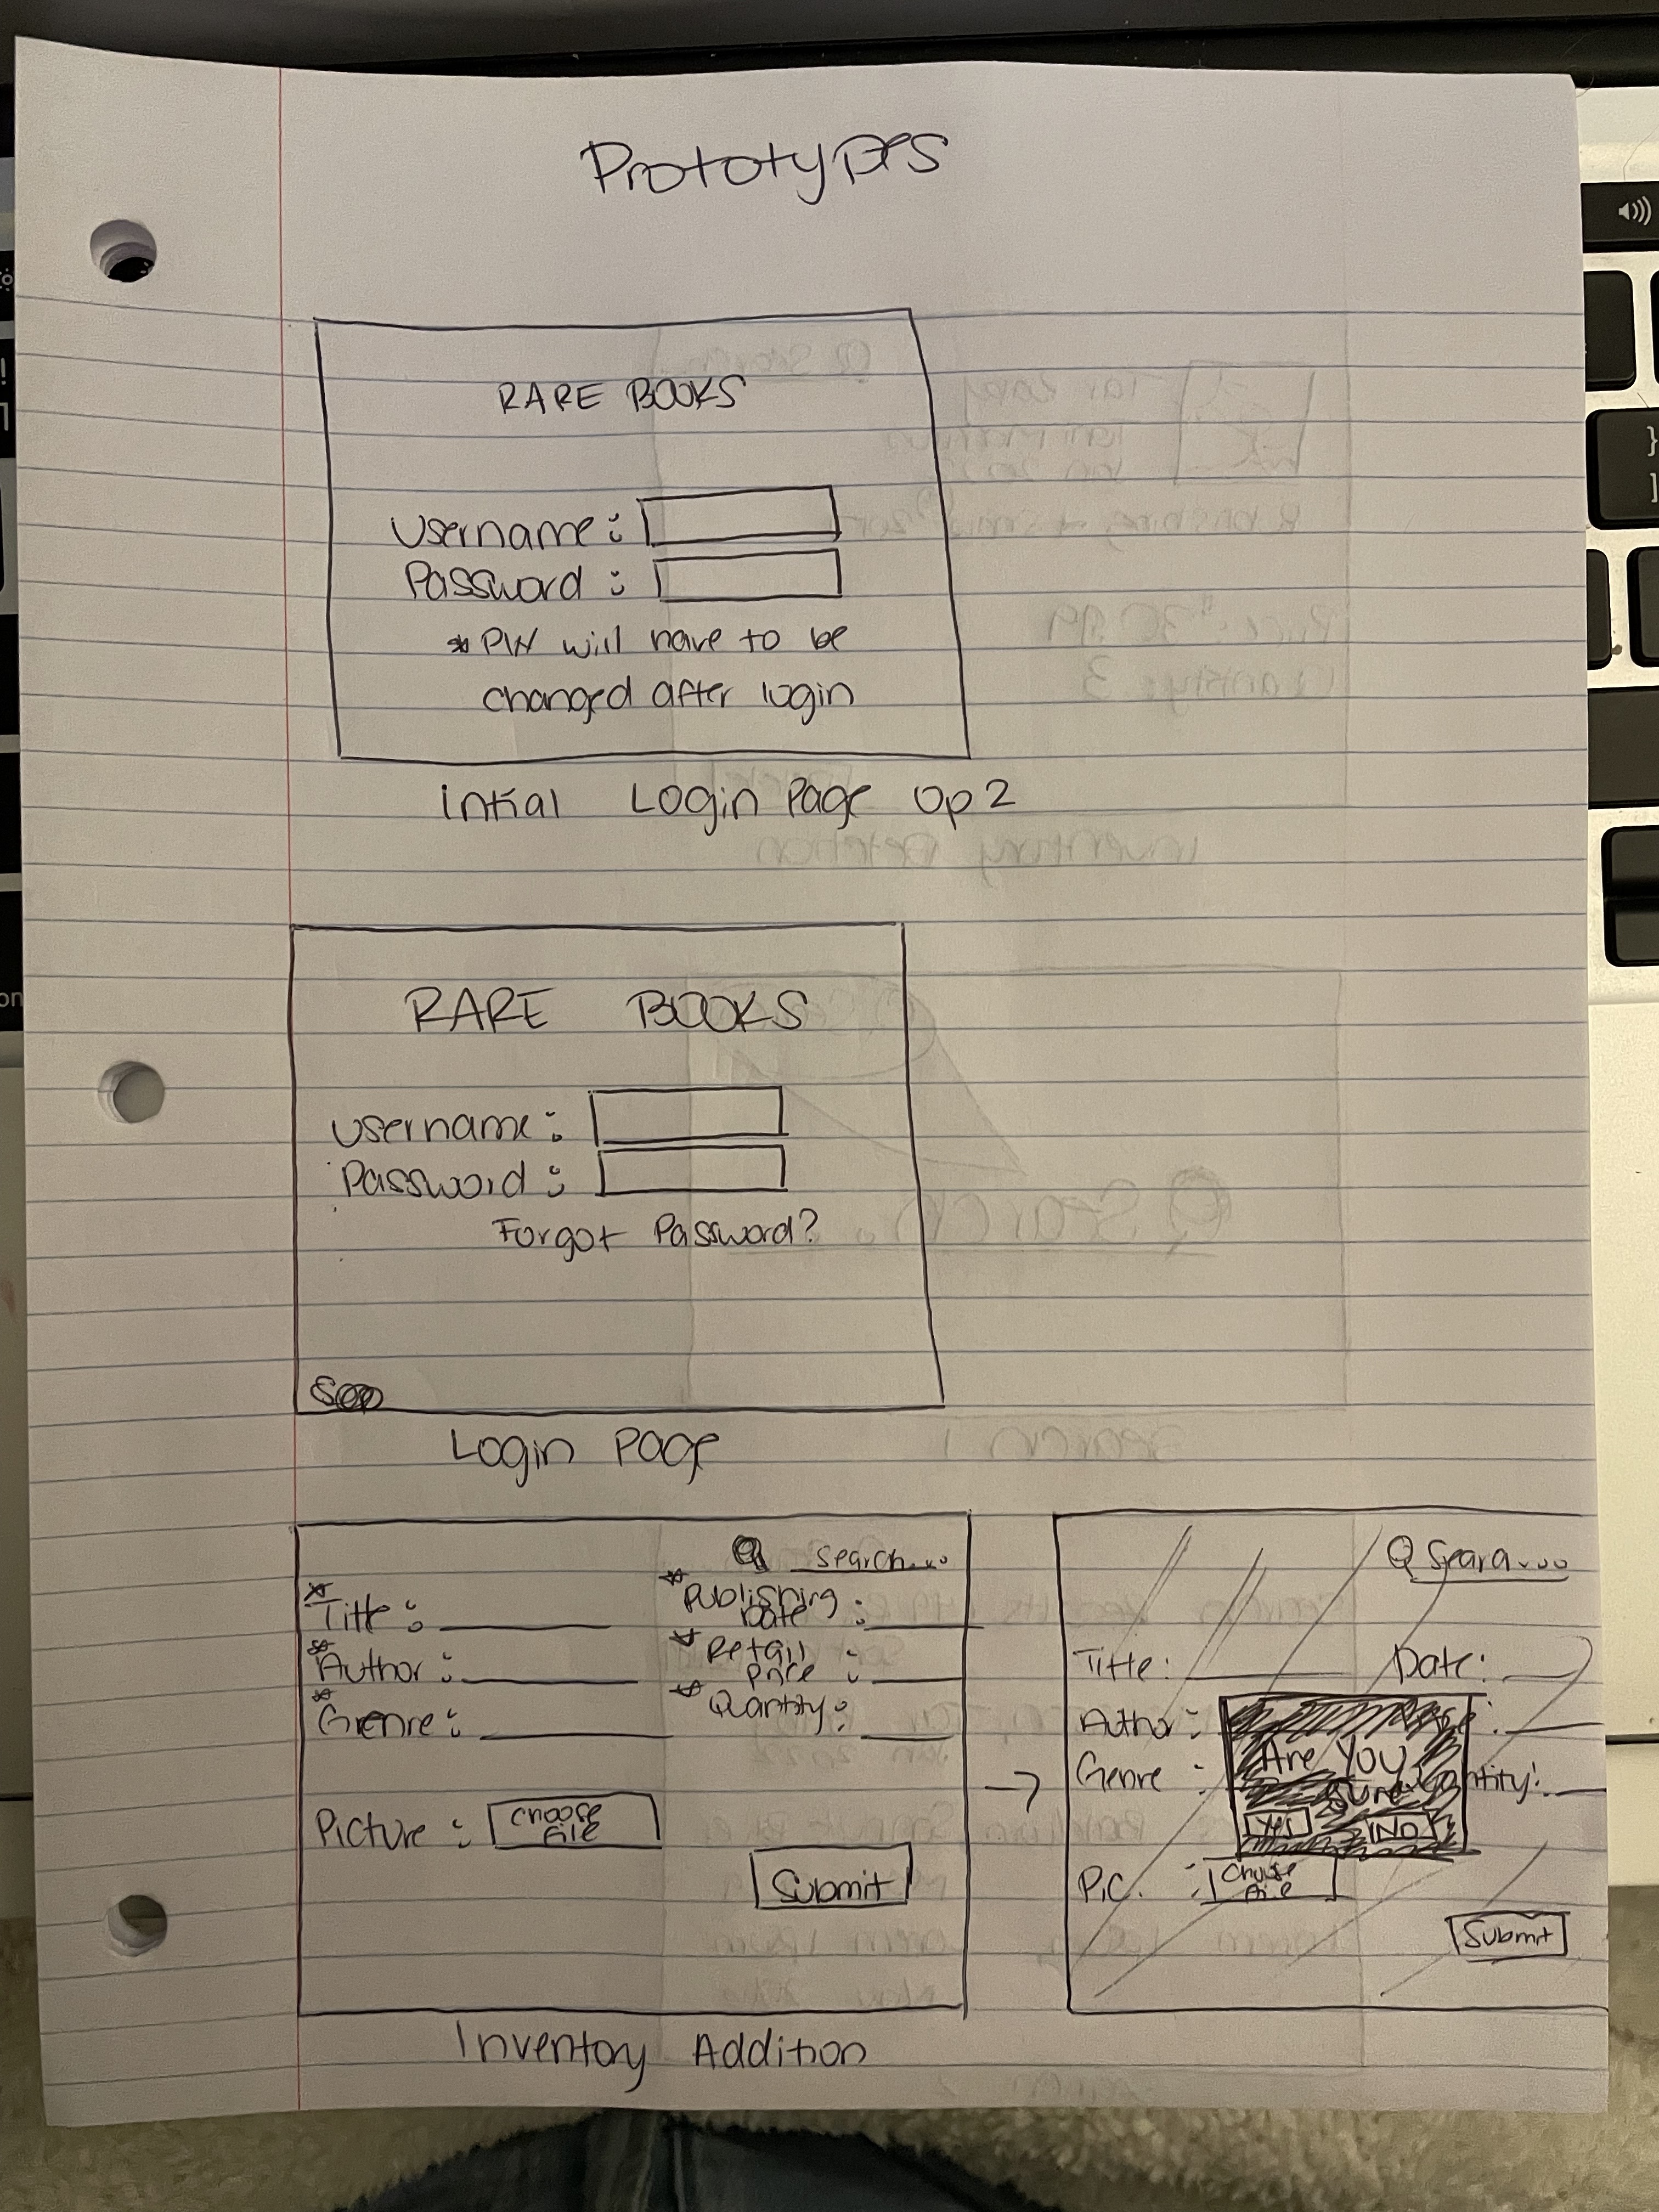 Prototypes
RARE BOOKS
Username:
Password:
* PIN will have to be
changed after login
Intial Login Page Op 2
RARE BOOKS
Username:
Password:
Forgot Password?
Login Page
Search...
*Title:
*Publishing
Date:
*Author:
*Retail
Price:
*Genre:
*Quantity:
Picture:
Choose
File
Submit
Inventory Addition
→
Title:
Date:
Author:
Genre:
Are You
Sure
Yes
No
Pic.:
Choose
File
Submit